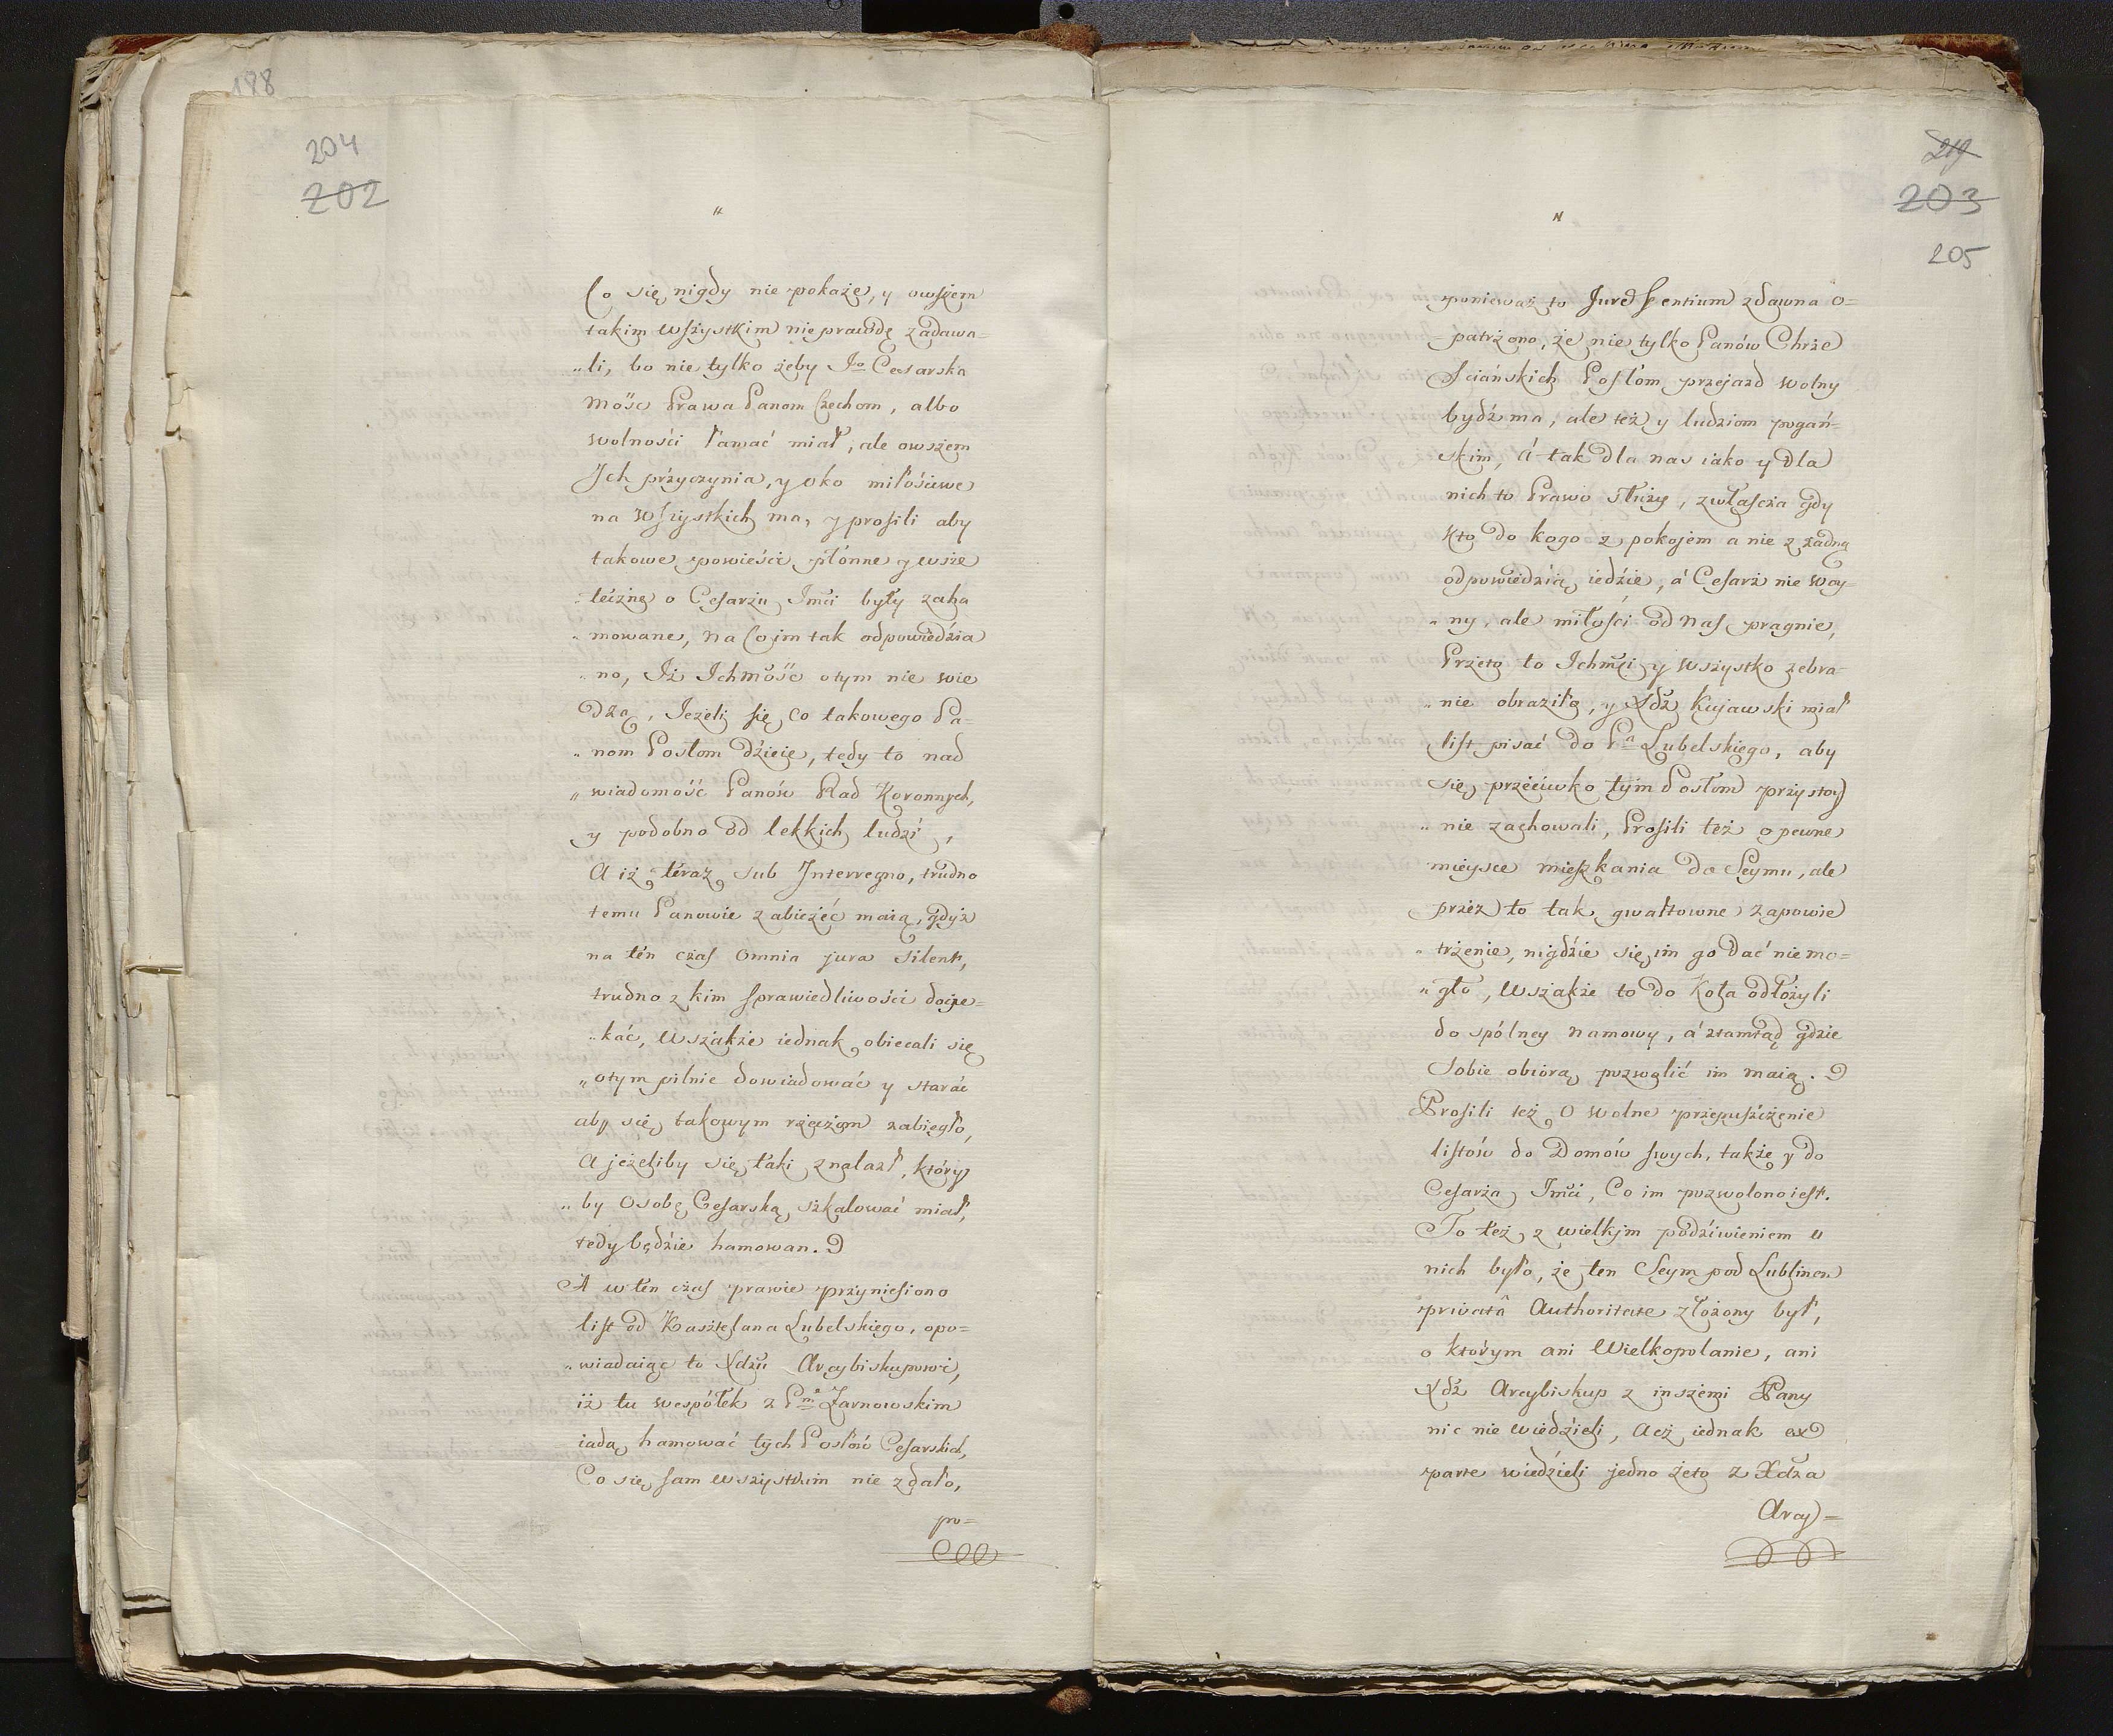 188
204
202
"
Co się nigdy nie pokaże, y owszem
takim wszystkim nieprawdę zadawa-
„li, bo nie tylko żeby Jo Cesarska
Mość Prawa Panom Czechom, albo
wolności łamać miał, ale owszem
Ich przyczynia, y oko miłościwe
na wszystkich ma, y prosili aby
takowe powieści płonne y wsze
:teczne o Cesarzu Jmci były zaha
„mowane, na Co im tak odpowiedzia
„no, Iż Ichmość otym nie wie
dzą, Jeżeli się co takowego Pa-
„nom Posłom dzieie, tedy to nad
„wiadomość Panów Rad Koronnych,
y podobno od lekkich ludzi,
A iż teraz sub Interregno, trudno
temu Panowie zabieżéć maią, gdyż
na ten czas Omnia jura silent,
trudno z kim sprawiedliwości docze-
„kać, wszakże iednak obiecali się
„otym pilnie dowiadować y starać
aby się takowym rzeczom zabiegło,
A jeżeliby się taki znalazł, który
„by Osobę Cesarską szkalować miał,
tedy będzie hamowan.
A w ten czas prawie przyniesiono
list od Kasztelana Lubelskiego, opo-
„wiadaiąc to Xdzu Arcybiskupowi,
iż tu wespółek z Pnem Zarnowskim
iadą hamować tych Posłów Cesarskich,
Co się sam wszystkim nie zdało,
po=
219
203
205
"
ponieważ to Jure Gentium zdawna o=
-patrzono, że nie tylko Panów Chrze
ściańskich Posłom przejazd wolny
bydź ma, ale też y ludziom pogań-
skim, á tak dla nas iako y dla
nich to Prawo służy, zwłascza gdy
kto do kogo z pokojem a nie z żadną
odpowiedzią iedzie, á Cesarz nie woy-
„ny, ale miłości od nas pragnie,
Przeto to Ichmci y wszystko zebra-
„nie obraziło, y Xdz Kujawski miał
list pisać do Pa Lubelskiego, aby
się przeciwko tym Posłom przystoy
„nie zachowali, Prosili też o pewne
mieysce mieszkania do Seymu, ale
przez to tak gwałtowne zapowie
„trzenie, nigdzie się im go dać nie mo=
„gło, wszakże to do Koła odłożyli
do spólney namowy, á ztamtąd gdzie
Sobie obiorą pozwolić im maią.
Prosili też o wolne przepuszczenie
listów do Domów swych, także y do
Cesarza Jmci, Co im pozwolono iest.
To też z wielkim podziwieniem u
nich było, że ten Seym pod Lublinem
privatâ Authoritate złożony był,
o którym ani Wielkopolanie, ani
Xdz Arcybiskup z inszemi Pany
nic nie wiedzieli, Acz iednak ex
parte wiedzieli jedno żeto z Xdza
Arcy=